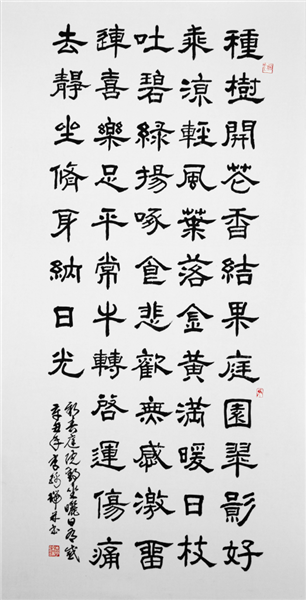 種樹開花香結果庭園翠影好
乘涼輕風葉落金黃滿暖日枝
吐碧綠揚啄食悲歡無感激留
連喜樂足平常牛轉啓運傷痛
去靜坐脩身納日光
新春庭院靜坐曬日有感
辛丑年書